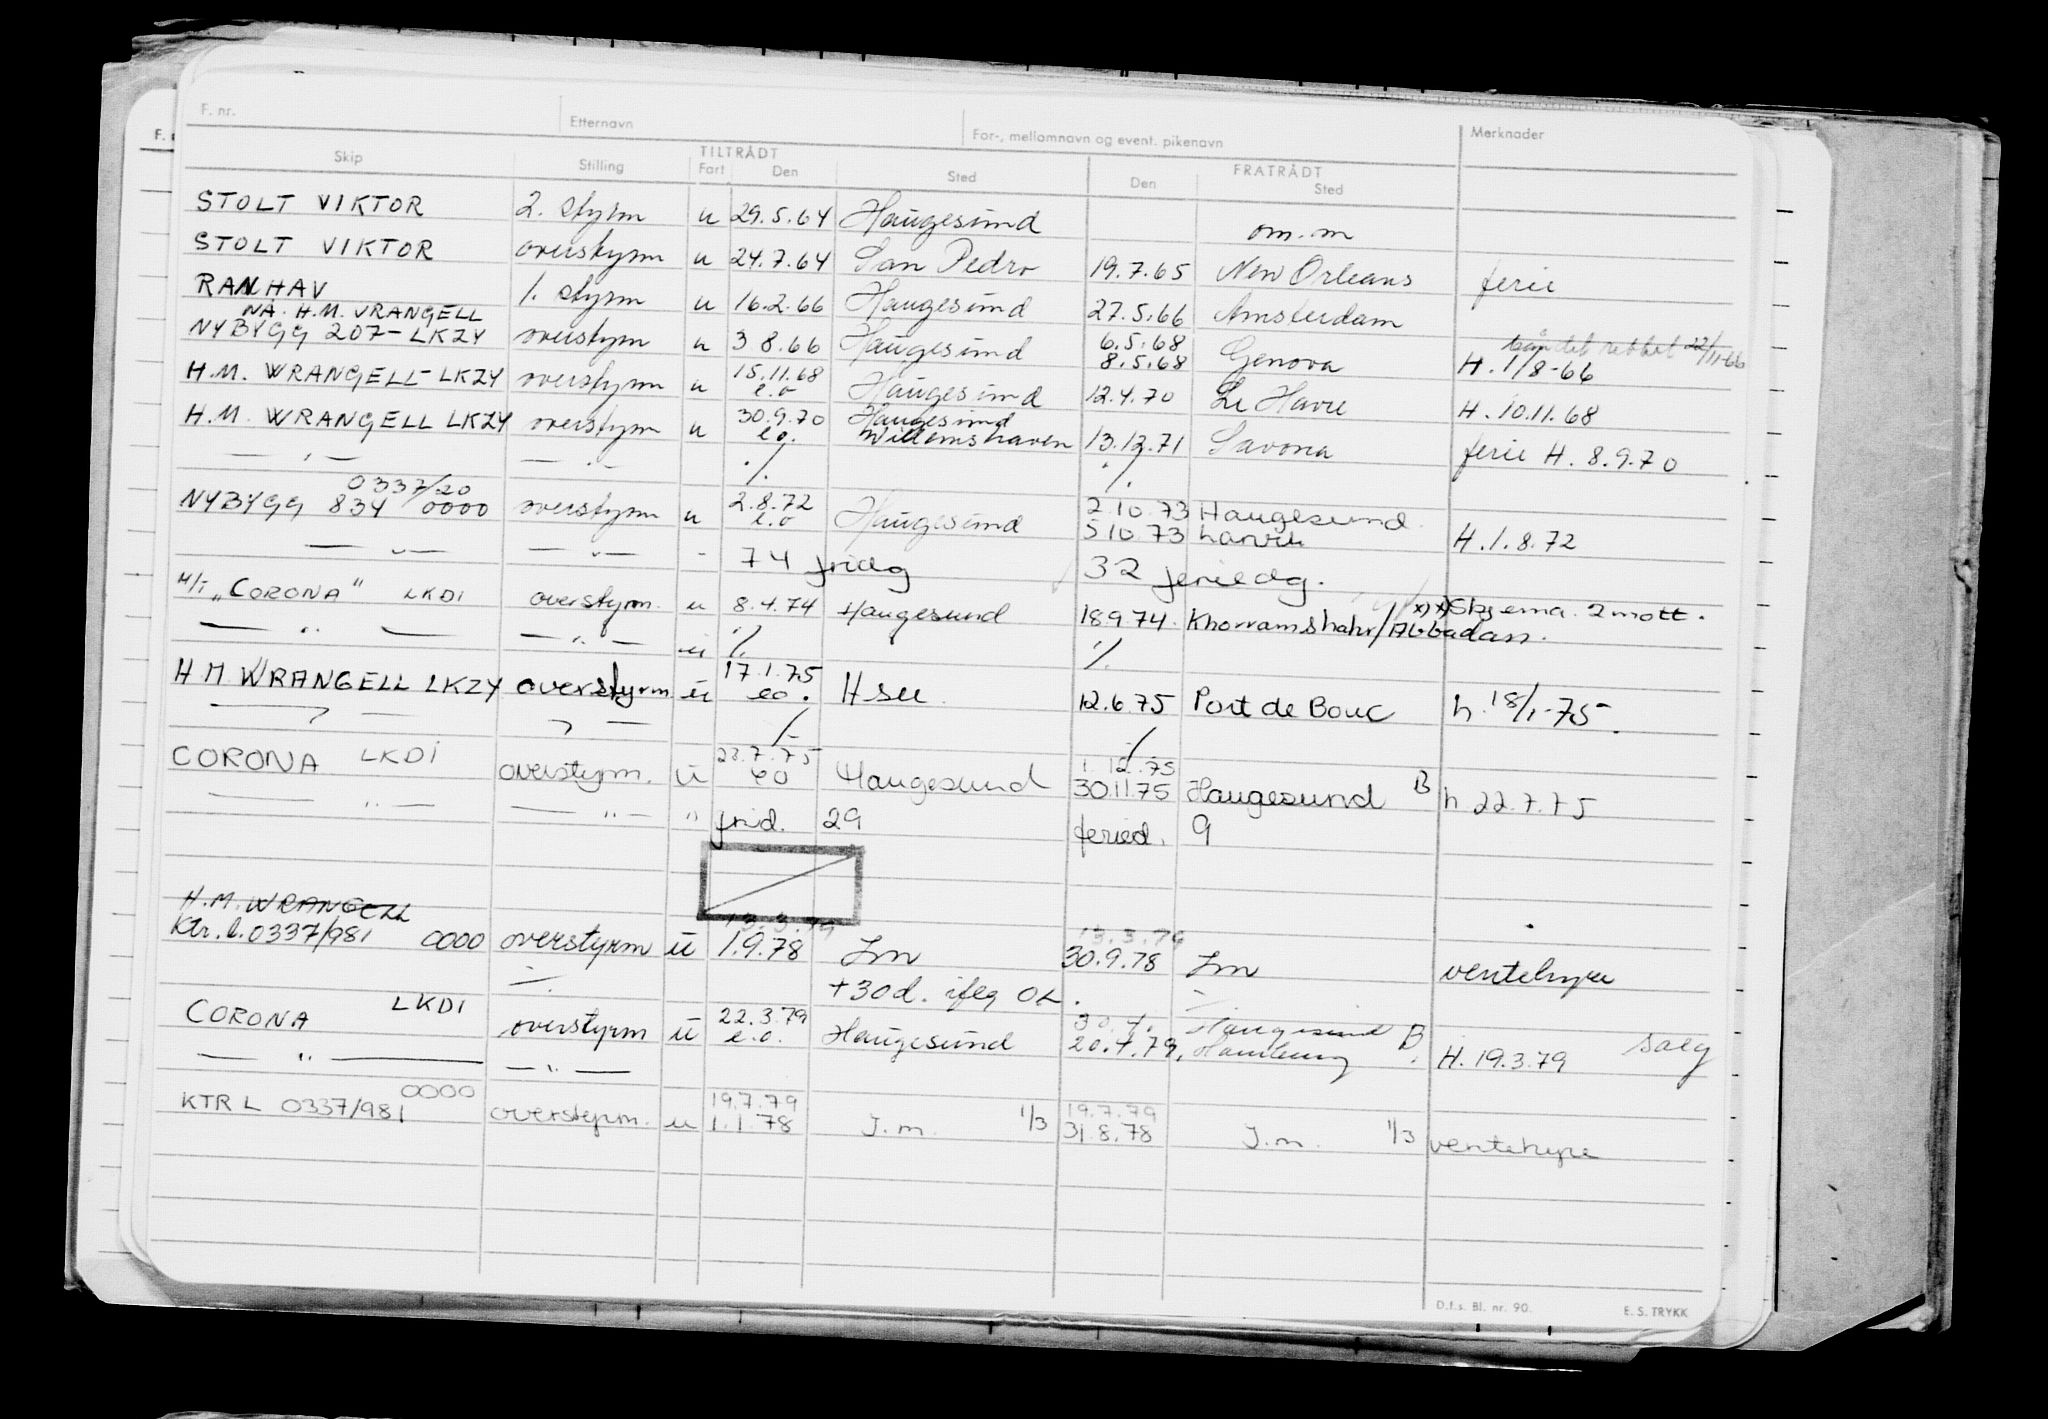 F. nr. Etternavn For-, mellomnavn og event. pikenavn Merknader
Skip Stilling TILTRÅDT Fart Den Sted FRATRÅDT Den Sted
STOLT VIKTOR 2. styrm u 29.5.64 Haugesund om. m
STOLT VIKTOR overstyrm u 24.7.64 San Pedro 19.7.65 New Orleans ferie
RANHAV 1. styrm u 16.2.66 Haugesund 27.5.66 Amsterdam
NÅ. H.M. VRANGELL
NYBYGG 207- LKZY overstyrm u 3 8.66 Haugesund 6.5.68 8.5.68 Genova H. 1/8-66 rettet 22/11-66
H.M. WRANGELL- LKZY overstyrm u 15.11.68 e.o Haugesund 12.4.70 Le Havre H. 10.11.68
H.M. WRANGELL LKZY overstyrm u 30.9.70 e.o. Haugesund Willemshaven 13.12.71 Savona ferie H. 8.9.70
— , — — . — ./. ./.
0337/20
NYBYGG 834 0000 overstyrm u 2.8.72 e.o Haugesund 2.10.73 Haugesund 5 10.73 Larvik H. 1. 8.72
— „ — — „ — - 74 fridg 32 feriedg.
M/T „CORONA" LKDI overstyrm. u 8.4.74 Haugesund 18974. Khorramshahr/Abbadan. x) x) Skjema. 2 mott.
— „ — — „ — u ./. ./.
H M WRANGELL LKZY overstyrm. u 17.1.75 eo. Hsu. 12.6.75 Port de Bouc h. 18/1-75.
CORONA LKDI overstyrm. u 23.7.75 eo Haugesund 1.12.75 30.11.75 Haugesund B h 22.7.75
— „ — — „ — „ frid. 29 feried. 9
H.M. WRANGELL
Ktr. l. 0337/981 0000 overstyrm u 13.3.79 1.9.78 Im 13.3.79 30.9.78 Im ventehyre
+30d. iflg OL.
CORONA LKDI overstyrm u 22.3.79 e.o. Haugesund 30.4. 20.4.79, Haugesund Hamburg B. H. 19.3.79 Salg
— „ — — „ —
KTR L 0337/981 0000 overstyrm. u 19.7.79 1.1.78 I.m. 1/3 19.7.79 31.8.78 I.m. 1/3 ventehyre
D.f.s. Bl. nr. 90. E. S. TRYKK